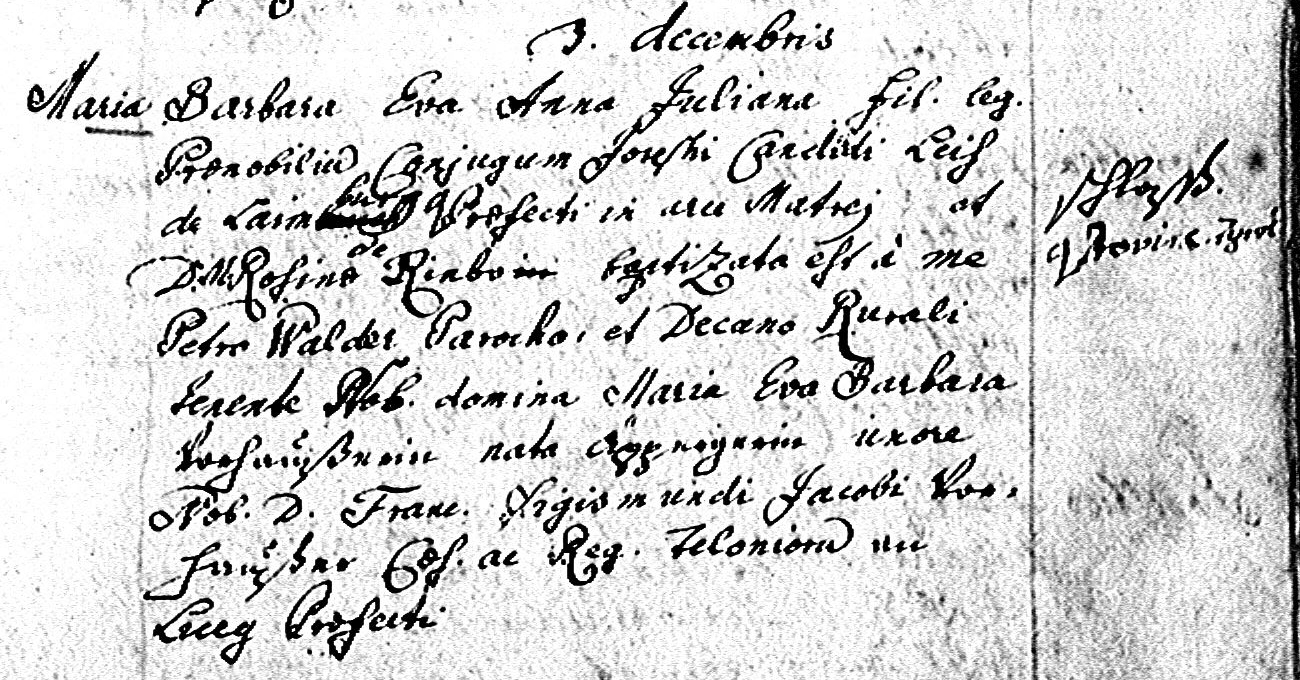 3. decembris
Maria Barbara Eva Anna Juliana fil. leg.
Prænobiliū Conjugum Josephi Candidi Leis
de Laim burg Præfecti in arce Matrej et
D. M. Rosinæ de Rinbo in baptizata est à me
Petro Walder Parocho, et Decano Rurali
tenente Nob. domina Maria Eva Barbara
Vorhaußerin nata uxore
Nob. D. Franc. Sigismundi Jacobi Vor-
haußer Cæs. ac Reg. teloniorū au
Lueg Præfecti
schloss.